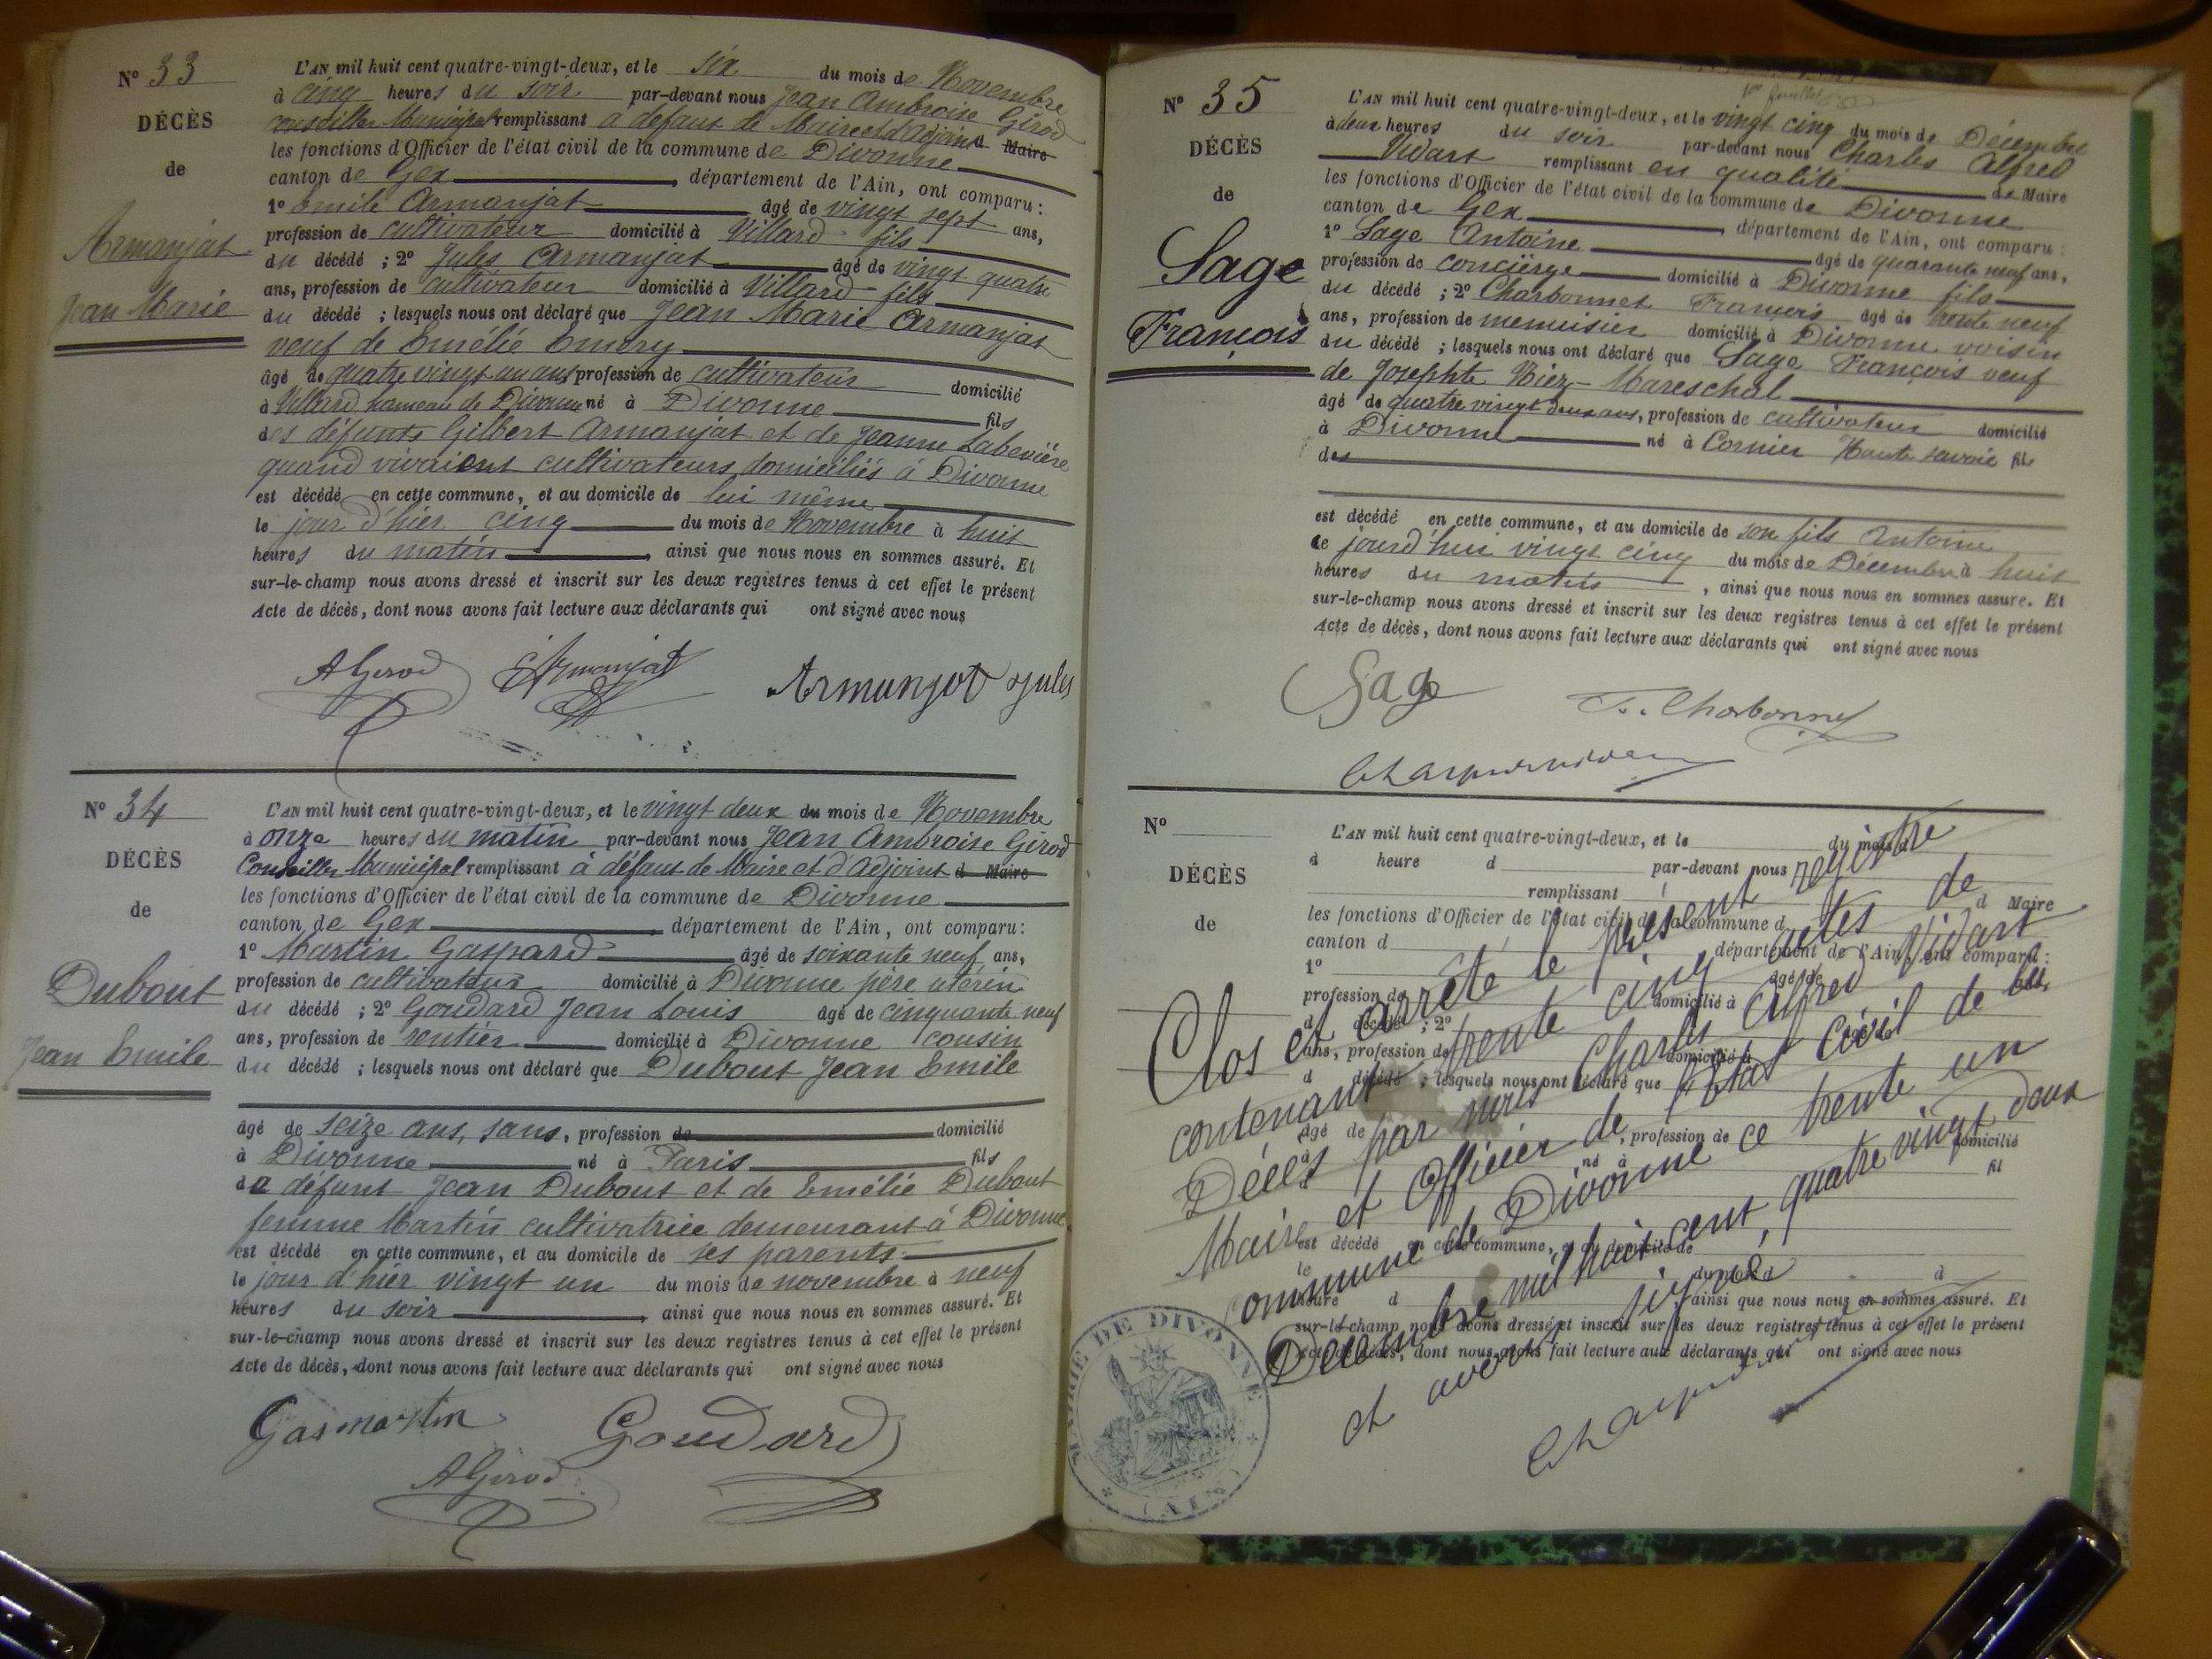 N° 33
DÉCÈS
de
Armanjat
Jean Marie
L'AN mil huit cent quatre-vingt-deux, et le six du mois de Novembre
à cinq heures du soir par-devant nous Jean Ambroise Girod
conseiller Municipal remplissant à défaut de Maire et d'adjoint d Maire
les fonctions d'Officier de l'état civil de la commune de Divonne
canton de Gex, département de l'Ain, ont comparu :
1° Emile Armanjat âgé de vingt sept ans,
profession de cultivateur domicilié à Villard fils
du décédé ; 2° Jules Armanjat âgé de vingt quatre
ans, profession de cultivateur domicilié à Villard fils
du décédé ; lesquels nous ont déclaré que Jean Marie Armanjat
veuf de Emélie Emery
âgé de quatre vingt un ans, profession de cultivateur domicilié
à Villard hameau de Divonne né à Divonne fils
des défunts Gilbert Armanjat et de Jeanne Labevière
quand vivaient cultivateurs domiciliés à Divonne
est décédé en cette commune, et au domicile de lui même
le jour d'hier cinq du mois de Novembre à huit
heures du matin, ainsi que nous nous en sommes assuré. Et
sur-le-champ nous avons dressé et inscrit sur les deux registres tenus à cet effet le présent
Acte de décès, dont nous avons fait lecture aux déclarants qui ont signé avec nous
AGirod EArmanjat Armanjat Jules
N° 34
DÉCÈS
de
Dubout
Jean Emile
L'AN mil huit cent quatre-vingt-deux, et le vingt deux du mois de Novembre
à onze heures du matin par-devant nous Jean Ambroise Girod
Conseiller Municipal remplissant à défaut de Maire et d'Adjoint d Maire
les fonctions d'Officier de l'état civil de la commune de Divonne
canton de Gex, département de l'Ain, ont comparu :
1° Martin Gaspard âgé de soixante neuf ans,
profession de cultivateur domicilié à Divonne père utérin
du décédé ; 2° Goudard Jean Louis âgé de cinquante neuf
ans, profession de rentier domicilié à Divonne cousin
du décédé ; lesquels nous ont déclaré que Dubout Jean Emile
âgé de seize ans, sans, profession de domicilié
à Divonne né à Paris fils
de défunt Jean Dubout et de Emélie Dubout
femme Martin cultivatrice demeurant à Divonne
est décédé en cette commune, et au domicile de ses parents
le jour d'hier vingt un du mois de novembre à neuf
heures du soir, ainsi que nous nous en sommes assuré. Et
sur-le-champ nous avons dressé et inscrit sur les deux registres tenus à cet effet le présent
Acte de décès, dont nous avons fait lecture aux déclarants qui ont signé avec nous
Gasmartin Goudard
AGirod
N° 35
DÉCÈS
de
Sage
François
L'AN mil huit cent quatre-vingt-deux, et le vingt cinq du mois de Décembre
à deux heures du soir par-devant nous Charles Alfred
Vidart remplissant en qualité de Maire
les fonctions d'Officier de l'état civil de la commune de Divonne
canton de Gex, département de l'Ain, ont comparu :
1° Sage Antoine âgé de quarante neuf ans,
profession de concièrge domicilié à Divonne fils
du décédé ; 2° Charbonnet François âgé de trente neuf
ans, profession de menuisier domicilié à Divonne voisin
du décédé ; lesquels nous ont déclaré que Sage François veuf
de Josephte Niez-Mareschal
âgé de quatre vingt deux ans, profession de cultivateur domicilié
à Divonne né à Cornier Haute savoie fils
des
est décédé en cette commune, et au domicile de son fils Antoine
le jourd'hui vingt cinq du mois de Décembre à huit
heures du matin, ainsi que nous nous en sommes assuré. Et
sur-le-champ nous avons dressé et inscrit sur les deux registres tenus à cet effet le présent
Acte de décès, dont nous avons fait lecture aux déclarants qui ont signé avec nous
Sage F. Charbonnet
N°
DÉCÈS
de
L'AN mil huit cent quatre-vingt-deux, et le du mois d
à heure d par-devant nous
remplissant d Maire
les fonctions d'Officier de l'état civil de la commune d
canton d département de l'Ain, ont comparu :
1° âgé de
profession de domicilié à
d décédé ; 2°
ans, profession de domicilié à
d décédé ; lesquels nous ont déclaré que
âgé de , profession de domicilié
à né à fil
est décédé en cette commune, et au domicile de
le du mois d à
heure d , ainsi que nous nous en sommes assuré. Et
sur-le-champ nous avons dressé et inscrit sur les deux registres tenus à cet effet le présent
Acte de décès, dont nous avons fait lecture aux déclarants qui ont signé avec nous
Clos et arrêté le présent registre
contenant trente cinq actes de
Décès par nous Charles Alfred Vidart
Maire et Officier de l'Etat Civil de la
commune de Divonne ce trente un
Décembre mil huit cent quatre vingt deux
et avons signé,
MAIRIE DE DIVONNE
(AIN)